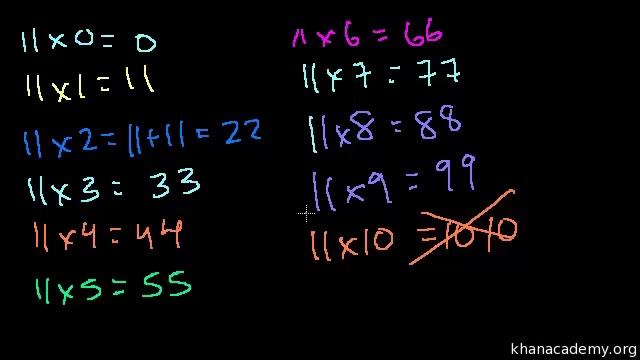 11 x 0 = 0
11 x 1 = 11
11 x 2 = 11 + 11 = 22
11 x 3 = 33
11 x 4 = 44
11 x 5 = 55
11 x 6 = 66
11 x 7 = 77
11 x 8 = 88
11 x 9 = 99
11 x 10 = 1010
khanacademy.org